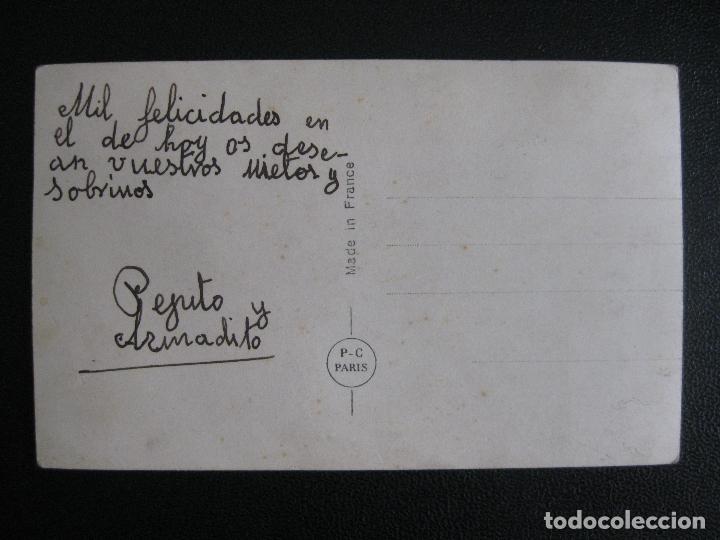 Mil felicidades en
el de hoy os dese-
an vuestros nietos y
sobrinos
Pepito y
Armadito
Made in France
P-C
PARIS
todocoleccion.net